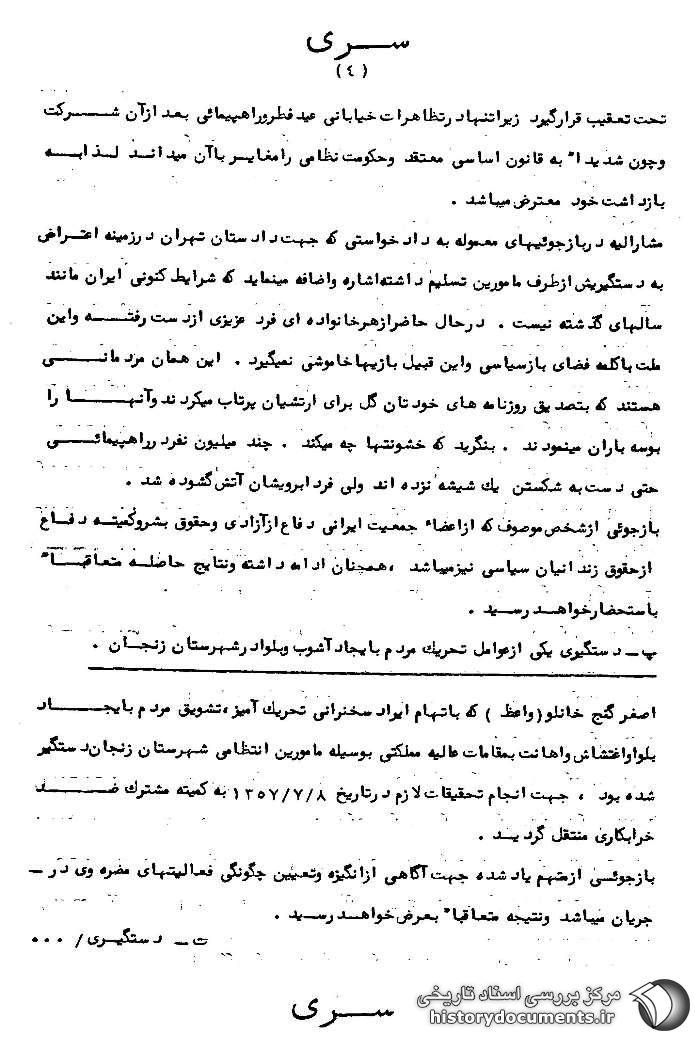 سری
(٤)
تحت تعقیب قرارگیرد زیرا تنها در تظاهرات خیابانی عید فطر و راهپیمائی بعد ازآن شرکت
وچون شدیداً به قانون اساسی معتقد وحکومت نظامی را مغایر باآن میداند لذا به
بازداشت خود معترض میباشد .
مشارالیه در بازجوئیهای معموله به دادخواستی که جهت دادستان تهران درزمینه اعتراض
به دستگیریش ازطرف مامورین تسلیم داشته اشاره واضافه مینماید که شرایط کنونی ایران مانند
سالهای گذشته نیست . درحال حاضر ازهر خانواده ای فرد عزیزی ازدست رفته واین
ملت باکلمه فضای بازسیاسی واین قبیل بازیها خاموشی نمیگیرد . این همان مردمانی
هستند که بتصدیق روزنامه های خودتان گل برای ارتشیان پرتاب میکردند وآنها را
بوسه باران مینمودند . بنگرید که خشونتها چه میکند . چند میلیون نفر درراهپیمائی
حتی دست به شکستن یك شیشه نزده اند ولی فردا برویشان آتش گشوده شد .
بازجوئی ازشخص موصوف که ازاعضاء جمعیت ایرانی دفاع ازآزادی وحقوق بشر وکمیته دفاع
ازحقوق زندانیان سیاسی نیز میباشد ، همچنان ادامه داشته ونتایج حاصله متعاقباً
باستحضار خواهد رسید .
پ ـ دستگیری یکی ازعوامل تحریك مردم بایجاد آشوب وبلوا درشهرستان زنجان .
اصغر گنج خانلو (واعظ) که باتهام ایراد سخنرانی تحریك آمیز ، تشویق مردم بایجاد
بلوا واغتشاش واهانت بمقامات عالیه مملکتی بوسیله مامورین انتظامی شهرستان زنجان دستگیر
شده بود ، جهت انجام تحقیقات لازم درتاریخ ١٣٥٧/٧/٨ به کمیته مشترك ضد
خرابکاری منتقل گردید .
بازجوئی ازمتهم یاد شده جهت آگاهی ازانگیزه وتعیین چگونگی فعالیتهای مضره وی در ـ
جریان میباشد ونتیجه متعاقباً بعرض خواهد رسید .
ت ـ دستگیری / ...
سری
مرکز بررسی اسناد تاریخی
historydocuments.ir